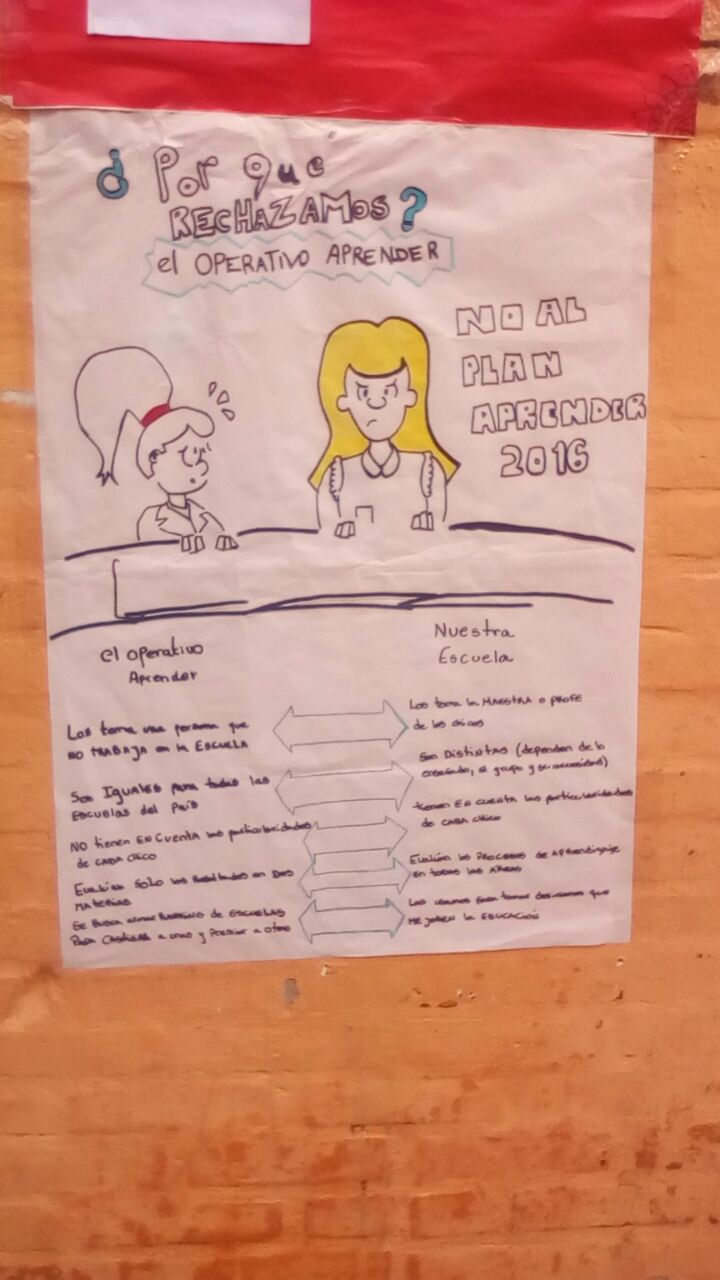 ¿ Por que
RECHAZAMOS ?
el OPERATIVO APRENDER
NO AL
PLAN
APRENDER
2016
el operativo
Aprender
Nuestra
Escuela
Las toma una persona que
NO TRABAJA en la ESCUELA
Las toma la MAESTRA o PROFE
de los chicos
Son IGUALES para todas las
ESCUELAS del País
Son DISTINTAS (dependen de lo
enseñado, el grupo y su necesidad)
NO tienen EN CUENTA las particularidades
de CADA CHICO
tienen EN CUENTA las particularidades
de CADA CHICO
Evalúan SOLO los Resultados en DOS
MATERIAS
Evalúan los PROCESOS de APRENDIZAJE
en TODAS LAS ÁREAS
Se BUSCA armar RANKING de ESCUELAS
PARA CASTIGAR a unas y PREMIAR a otras
Las usamos para tomar decisiones que
MEJOREN la EDUCACIÓN